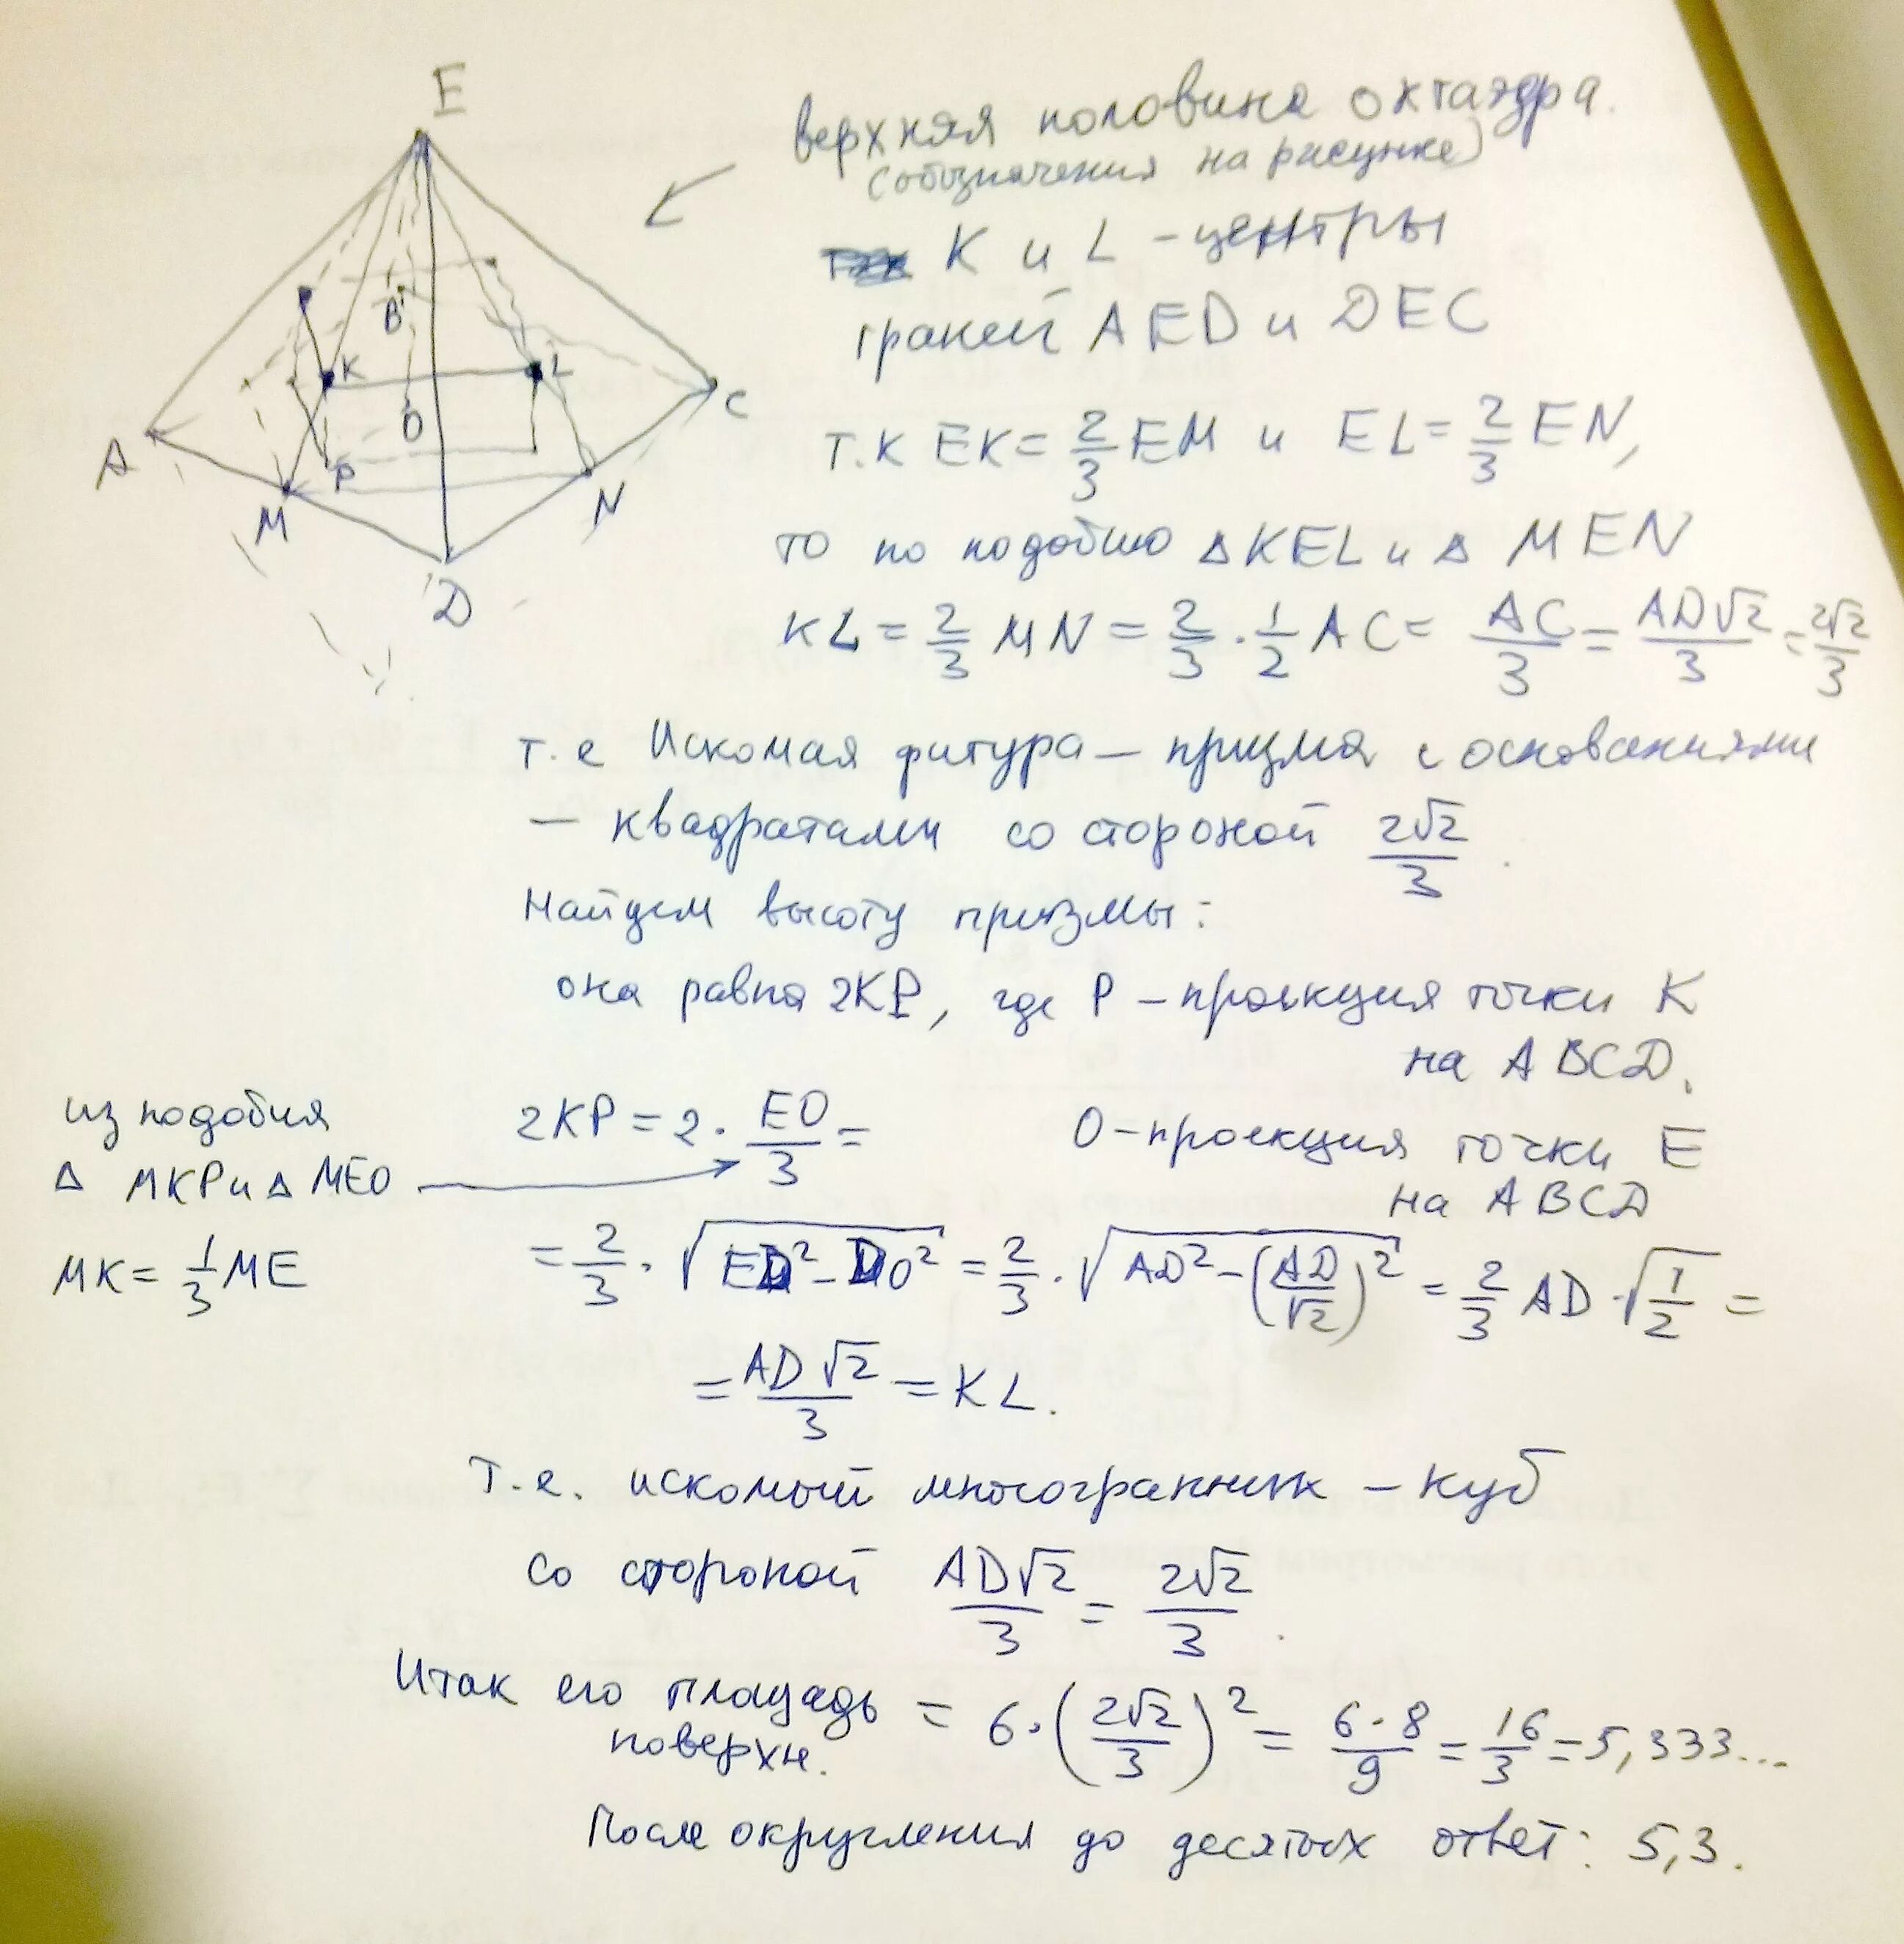 E
верхняя половина октаэдра.
(обозначения на рисунке)
K и L - центры
граней AED и DEC
B
K
L
O
C
A
P
M
N
D
т.к EK = 2/3 EM и EL = 2/3 EN,
то по подобию Δ KEL и Δ MEN
KL = 2/3 MN = 2/3 · 1/2 AC = AC/3 = AD√2/3 = 2√2/3
т.е Искомая фигура — призма с основаниями
— квадратами со стороной 2√2/3.
Найдем высоту призмы:
она равна 2KP, где P - проекция точки K
на ABCD.
из подобия
Δ MKP и Δ MEO
MK = 1/3 ME
2KP = 2 · EO/3 =
O - проекция точки E
на ABCD
= 2/3 · √(ED² - DO²) = 2/3 · √(AD² - (AD/√2)²) = 2/3 AD · √(1/2) =
= AD√2/3 = KL.
Т.е. искомый многогранник - куб
со стороной AD√2/3 = 2√2/3.
Итак его площадь поверхн. = 6 · (2√2/3)² = 6·8/9 = 16/3 = 5,333...
После округления до десятых ответ: 5,3.